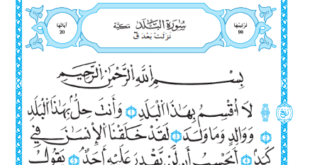 ترتيبها
90
سورة البلد مكية
نزلت بعد ق
آياتها
20
بسم الله الرحمن الرحيم
لا أقسم بهذا البلد ۝ وأنت حل بهذا البلد
۝ ووالد وما ولد ۝ لقد خلقنا الإنسن في
كبد ۝ أيحسب أن لن يقدر عليه أحد ۝ يقول